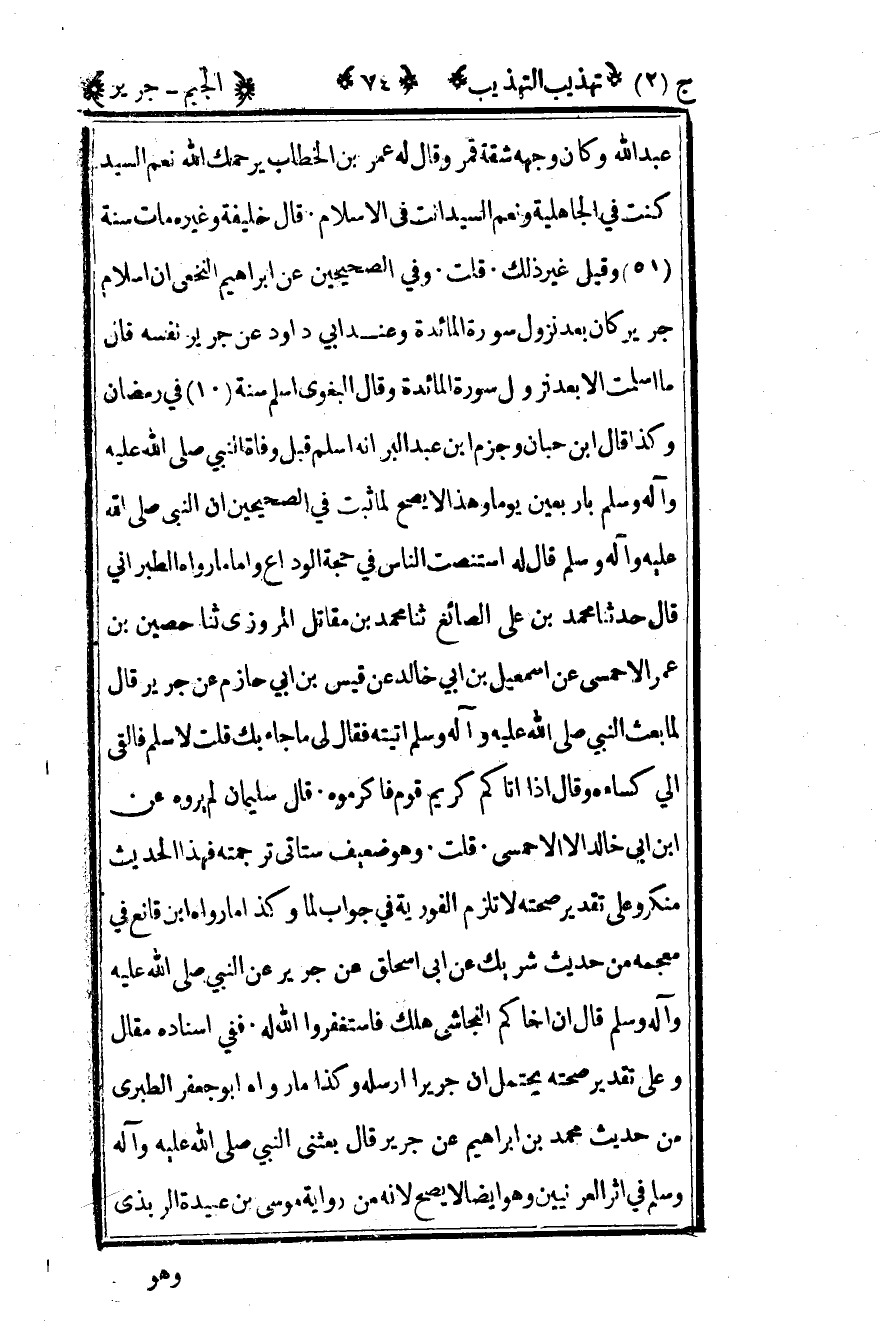 ج (٢) ﴿ تهذيب التهذيب ﴾ ﴿ ٧٤ ﴾ ﴿ الجيم - جرير ﴾
عبدالله وكان وجهه شقة قمر وقال له عمر بن الخطاب يرحمك الله نعم السيد
كنت في الجاهلية ونعم السيد انت فى الاسلام · قال خليفة وغيره مات سنة
(٥١) وقيل غير ذلك · قلت · وفي الصحيحين عن ابراهيم النخعى ان اسلام
جرير كان بعد نزول سورة المائدة وعند ابي داود عن جرير نفسه قال
ما اسلمت الا بعد نزول سورة المائدة وقال البغوى اسلم سنة (١٠) في رمضان
وكذا قال ابن حبان وجزم ابن عبد البر انه اسلم قبل وفاة النبي صلى الله عليه
وآله وسلم باربعين يوما وهذا لا يصح لما ثبت في الصحيحين ان النبى صلى الله
عليه وآله وسلم قال له استنصت الناس في حجة الوداع واما ما رواه الطبراني
قال حدثنا محمد بن على الصائغ ثنا محمد بن مقاتل المروزى ثنا حصين بن
عمر الاحمسى عن اسمعيل بن ابي خالد عن قيس بن ابي حازم عن جرير قال
لما بعث النبي صلى الله عليه وآله وسلم اتيته فقال لى ما جاء بك قلت لاسلم فالقى
الي كساءه وقال اذا اتاكم كريم قوم فاكرموه · قال سليمان لم يروه عن
ابن ابي خالد الا الاحمسى · قلت · وهو ضعيف ستاتى ترجمته فهذا الحديث
منكر وعلى تقدير صحته لا تلزم الفورية في جواب لما وكذا ما رواه ابن قانع في
معجمه من حديث شريك عن ابى اسحاق عن جرير عن النبي صلى الله عليه
وآله وسلم قال ان اخاكم النجاشى هلك فاستغفروا الله له · ففي اسناده مقال
وعلى تقدير صحته يحتمل ان جريرا ارسله وكذا ما رواه ابو جعفر الطبرى
من حديث محمد بن ابراهيم عن جرير قال بعثنى النبي صلى الله عليه وآله
وسلم في اثر العرنيين وهو ايضا لا يصح لانه من رواية موسى بن عبيدة الربذى
وهو